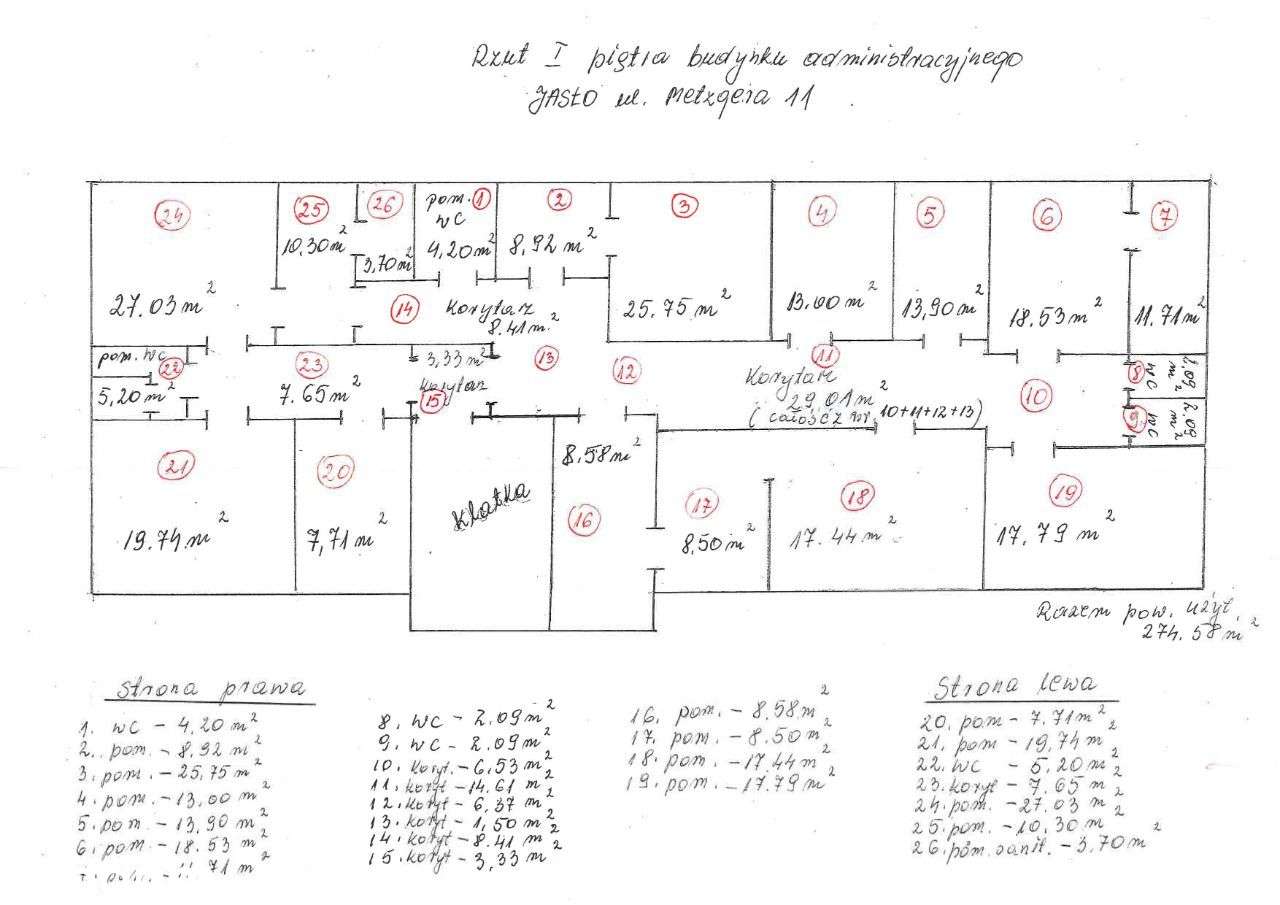 Rzut I piętra budynku administracyjnego
JASŁO ul. Metzgera 11
24
25
26
pom. 1
WC
2
3
4
5
6
7
27.03 m²
10,30 m²
3,70 m²
4,20 m²
8,92 m²
25.75 m²
13.00 m²
13,90 m²
18.53 m²
11.71 m²
14
Korytarz
8.41 m²
pom. WC
22
5,20 m²
23
7.65 m²
3,33 m²
Korytarz
15
13
12
11
Korytarz
29.01 m²
(całość z nr. 10+11+12+13)
10
8
WC
2.09 m²
9
WC
2.09 m²
21
19.74 m²
20
7,71 m²
Klatka
8.58 m²
16
17
8,50 m²
18
17.44 m²
19
17.79 m²
Razem pow. użyt.
274.58 m²
Strona prawa
1. WC - 4,20 m²
2. pom. - 8,92 m²
3. pom. - 25,75 m²
4. pom. - 13,00 m²
5. pom - 13,90 m²
6. pom - 18.53 m²
71 m²
8. WC - 2.09 m²
9. WC - 2.09 m²
10. koryt. - 6,53 m²
11. koryt - 14.61 m²
12. koryt - 6,37 m²
13. koryt - 1,50 m²
14. koryt - 8.41 m²
15. koryt - 3,33 m²
16. pom. - 8.58 m²
17. pom. - 8.50 m²
18. pom. - 17,44 m²
19. pom. - 17.79 m²
Strona lewa
20. pom - 7.71 m²
21. pom - 19,74 m²
22. WC - 5,20 m²
23. koryt - 7.65 m²
24. pom. - 27.03 m²
25. pom. - 10,30 m²
26. pom. sanit. - 3,70 m²